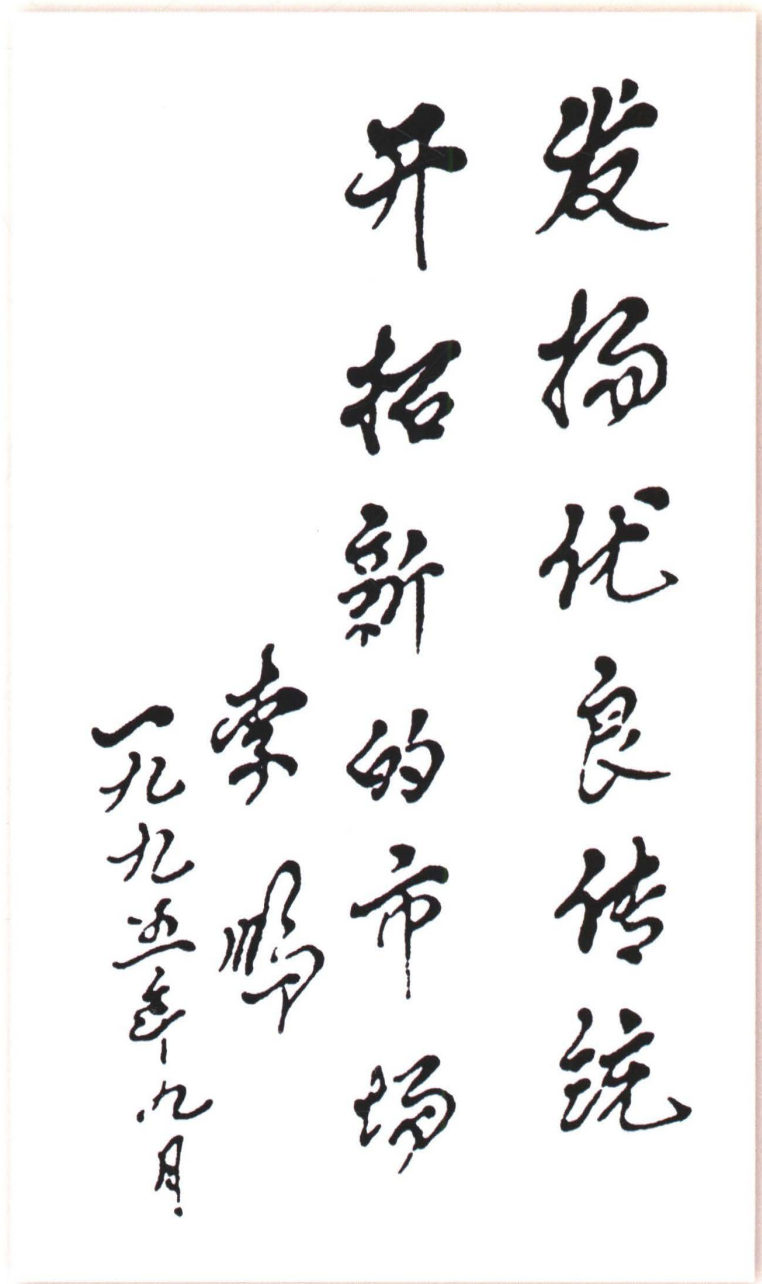 发扬优良传统
开拓新的市场
李鹏
一九九五年九月